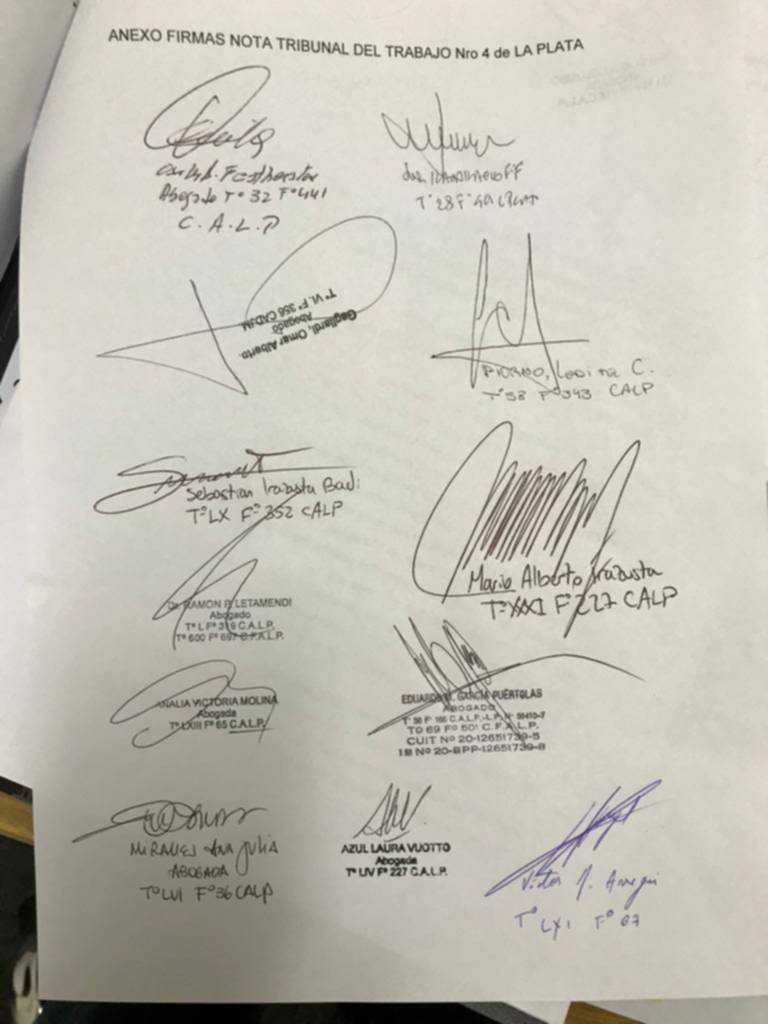 ANEXO FIRMAS NOTA TRIBUNAL DEL TRABAJO Nro 4 de LA PLATA
Abogado T° 32 F° 441
C. A. L. P
T° 28 F°
Gagliardi, Omar Alberto.
Abogado
T° VI. F° 356 CADJM
C.
T°58 F°343 CALP
Sebastian Irazusta Badi
T° LX F° 352 CALP
Mario Alberto Irazusta
T° XXXI F° 227 CALP
Dr. RAMON P. LETAMENDI
Abogado
T° L F° 319 C.A.L.P.
T° 600 F° 697 C.F.A.L.P.
ANALIA VICTORIA MOLINA
Abogada
T° LXIII F° 65 C.A.L.P.
EDUARDO GARCIA PUÉRTOLAS
ABOGADO
C.A.L.P.
TO 69 Fº 501 C.F.A.L.P.
CUIT Nº 20-12651739-5
IB Nº 20-BPP-12651739-8
MIRALLES ANA JULIA
ABOGADA
T° LVI F° 36 CALP
AZUL LAURA VUOTTO
Abogada
T° LIV F° 227 C.A.L.P.
Victor
T° LXI F° 67